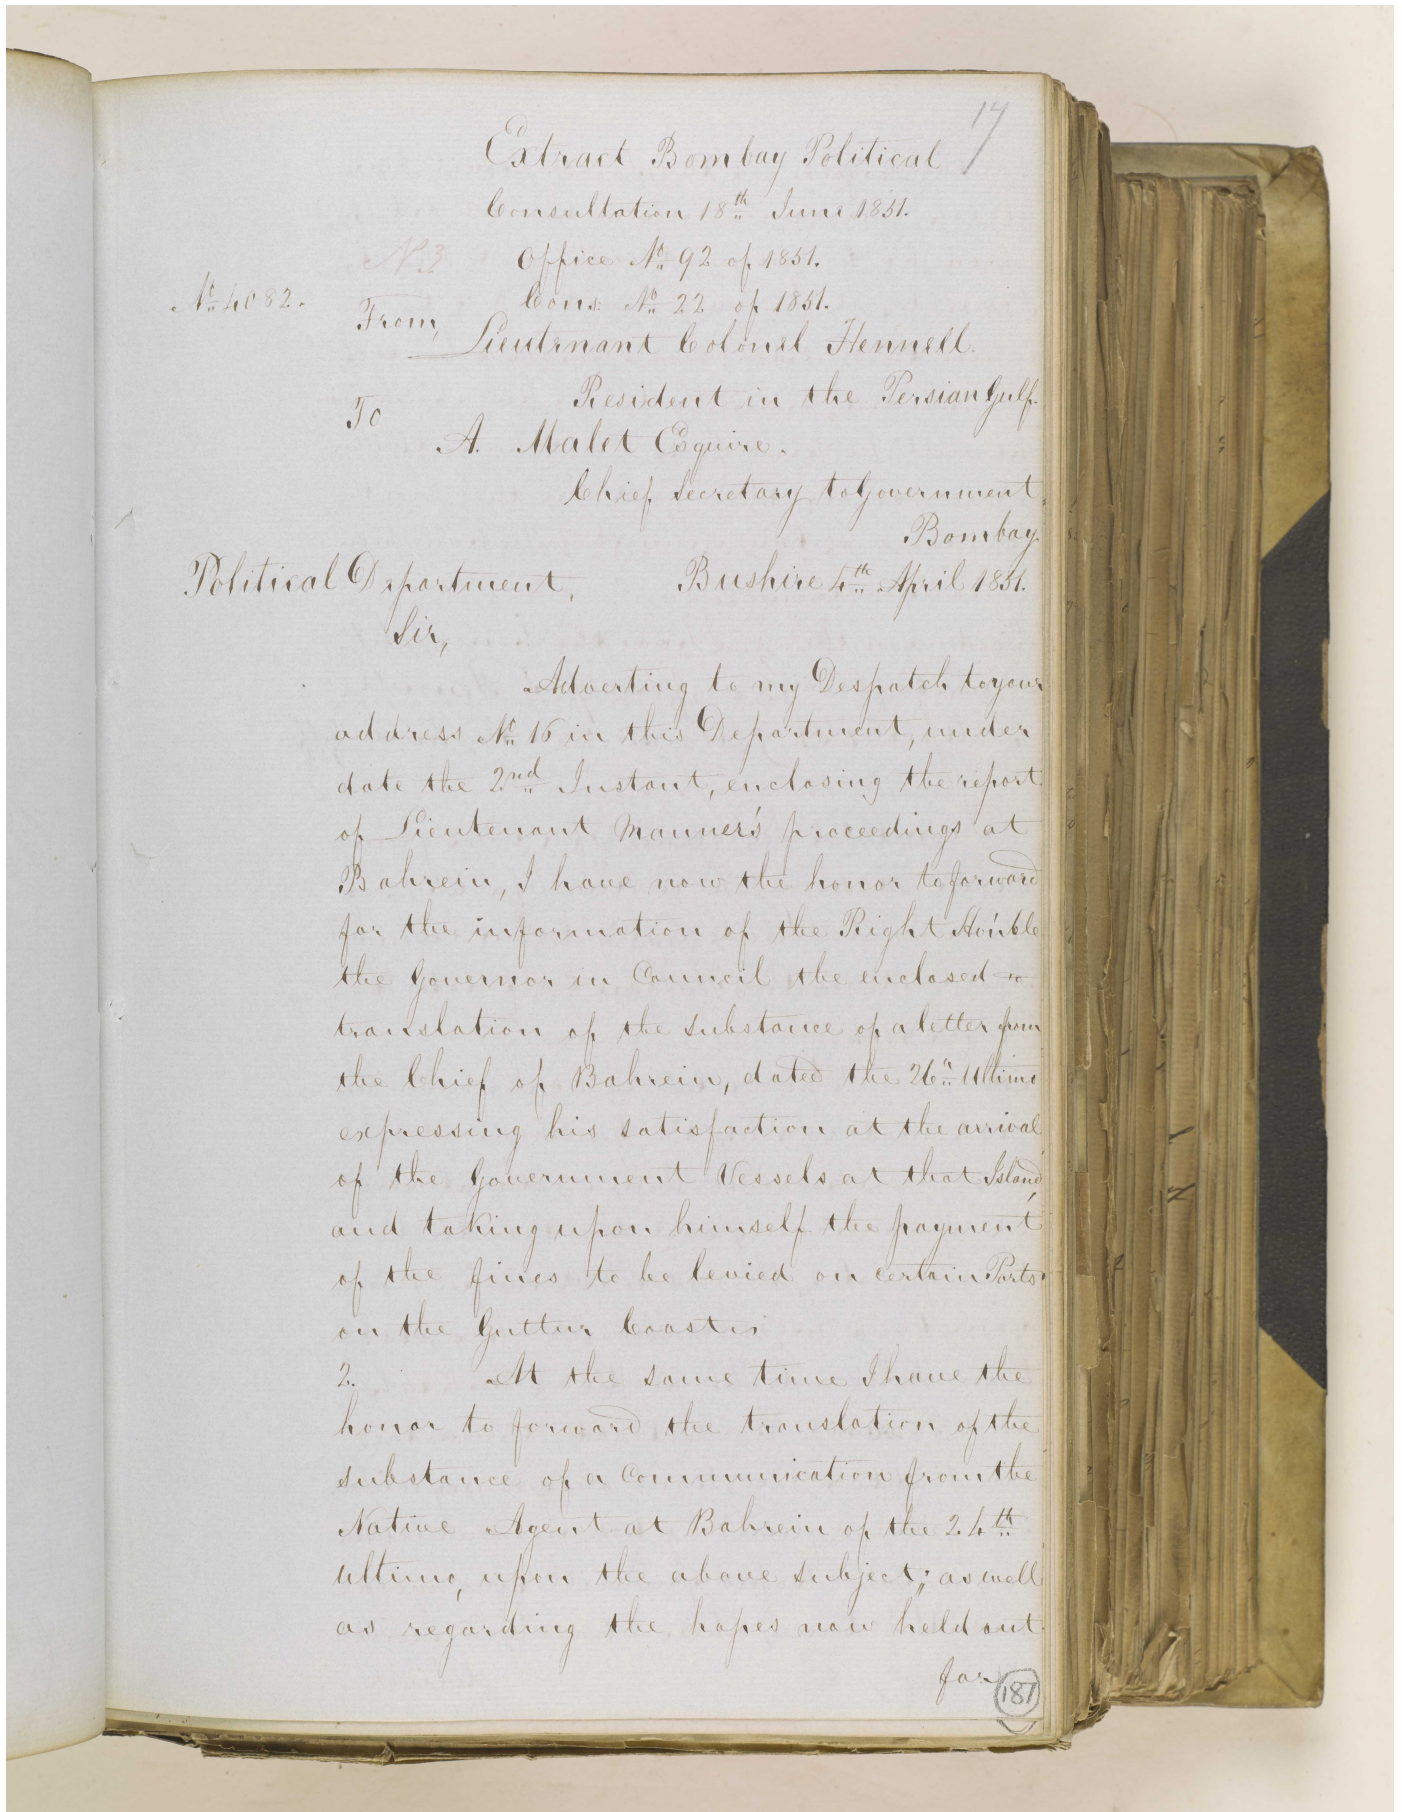 17
Extract Bombay Political
Consultation 18th June 1851.
Office No 92 of 1851.
No 4082.
Cons: No 22 of 1851.
From,
Lieutenant Colonel Hennell.
Resident in the Persian Gulf.
To
A. Malet Esquire.
Chief Secretary to Government
Bombay.
Political Department, Bushire 4th April 1851.
Sir,
Adverting to my Despatch to your
address No 16 in this Department, under
date the 2nd Instant, enclosing the report
of Lieutenant Manner's proceedings at
Bahrein, I have now the honor to forward
for the information of the Right Hon'ble
the Governor in Council the enclosed
translation of the substance of a letter from
the Chief of Bahrein, dated the 26th Ultimo
expressing his satisfaction at the arrival
of the Government Vessels at that Island,
and taking upon himself the payment
of the fines to be levied on certain Ports
on the Guttur Coast
2. At the same time I have the
honor to forward the translation of the
substance of a Communication from the
Native Agent at Bahrein of the 24th
Ultimo, upon the above subject; as well
as regarding the hopes now held out
for
187